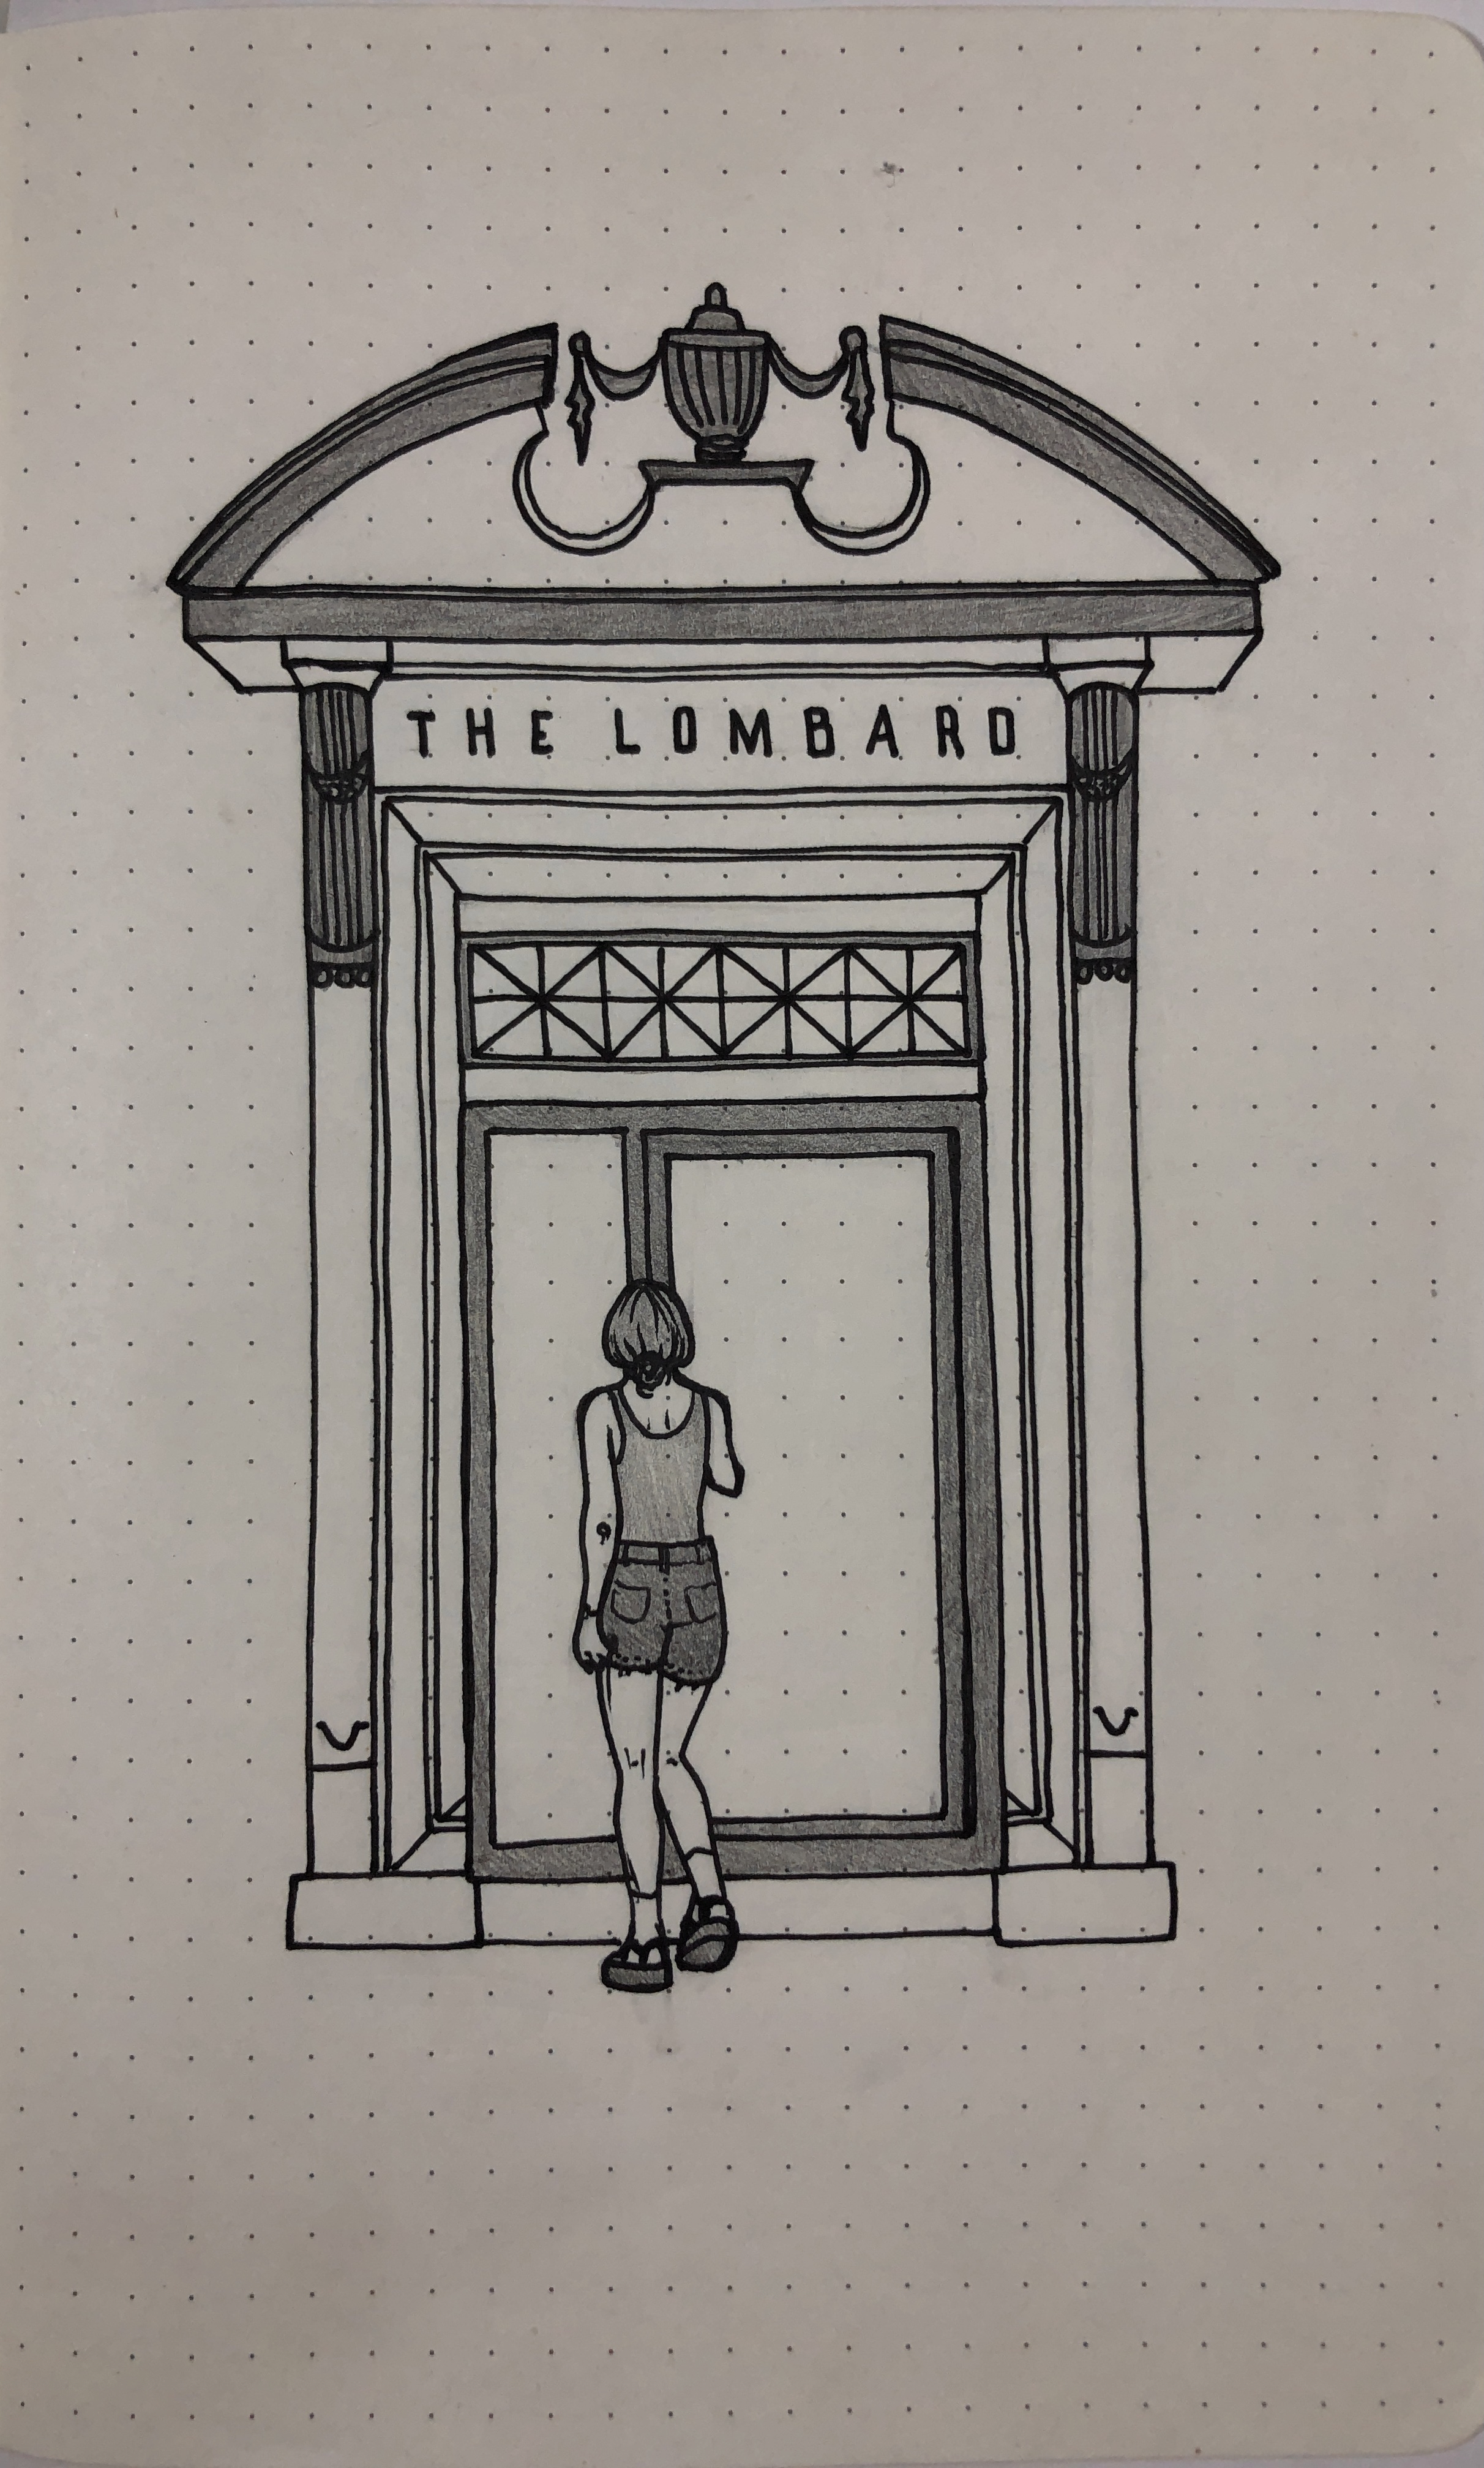 THE LOMBARD